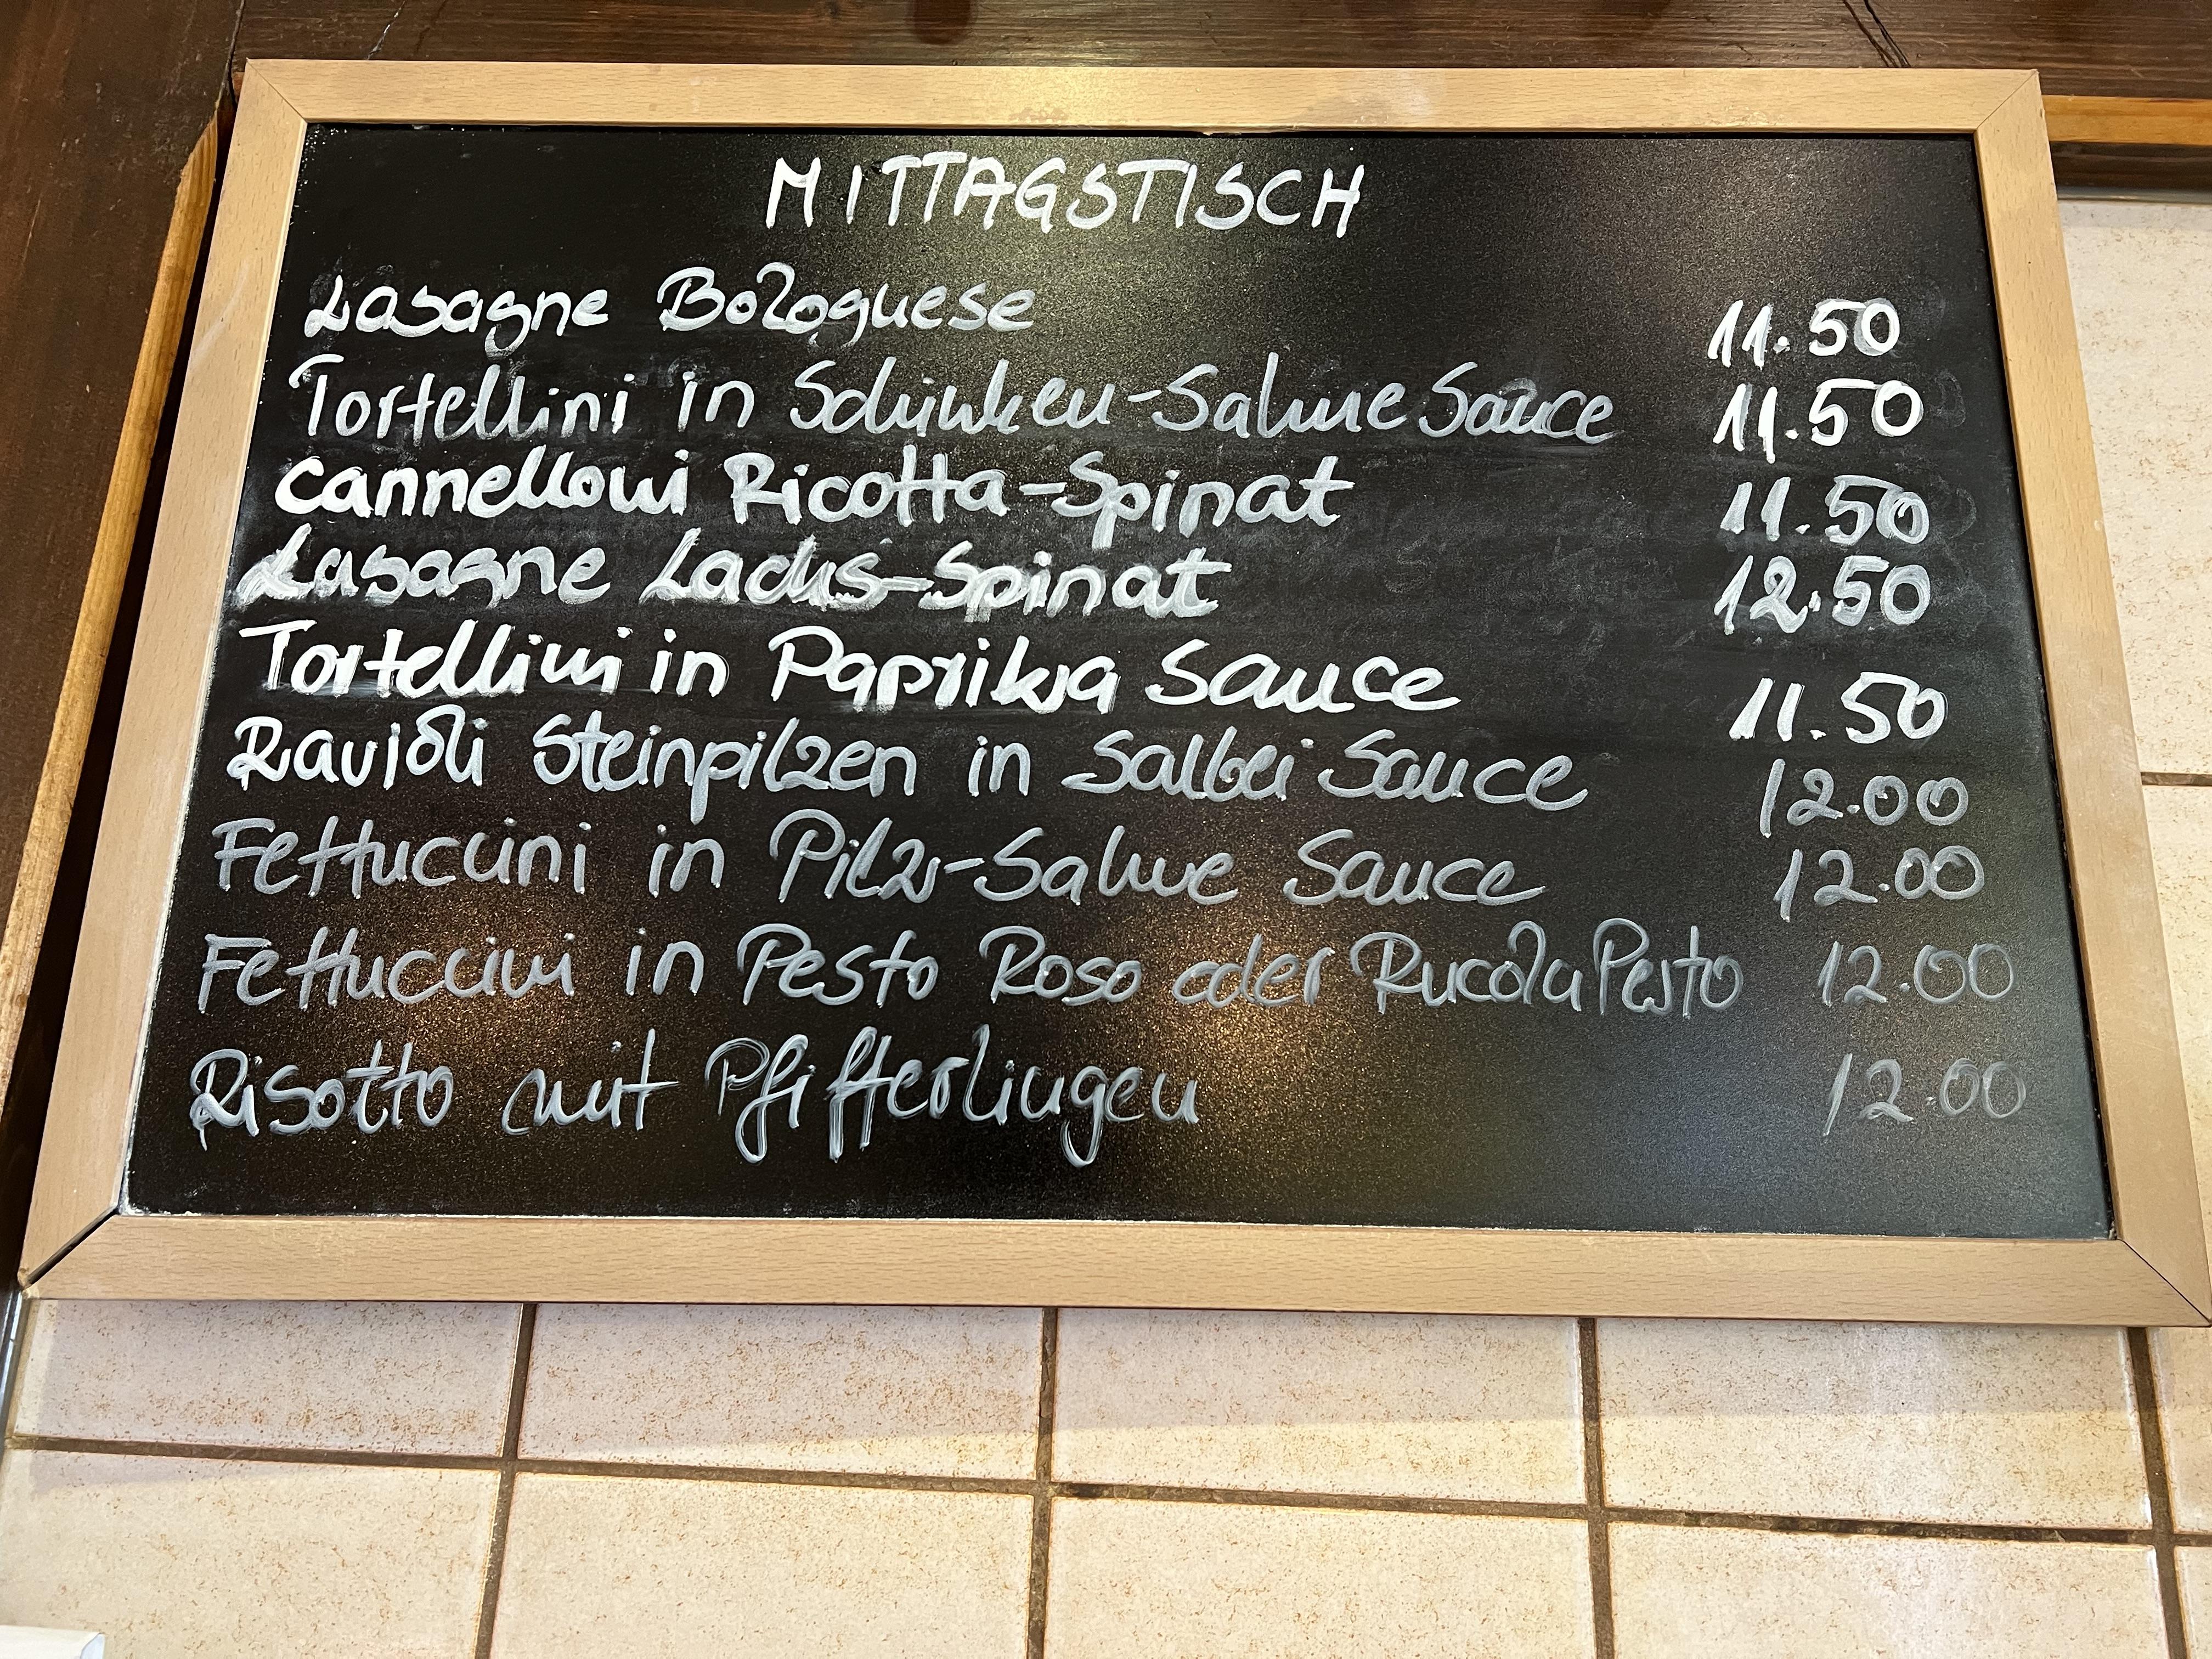 MITTAGSTISCH
Lasagne Bolognese 11.50
Tortellini in Schinken-Sahne Sauce 11.50
Cannelloni Ricotta-Spinat 11.50
Lasagne Lachs-Spinat 12.50
Tortellini in Paprika Sauce 11.50
Ravioli Steinpilzen in Salbei Sauce 12.00
Fettuccini in Pilz-Sahne Sauce 12.00
Fettuccini in Pesto Roso oder Rucola Pesto 12.00
Risotto mit Pfifferlingen 12.00